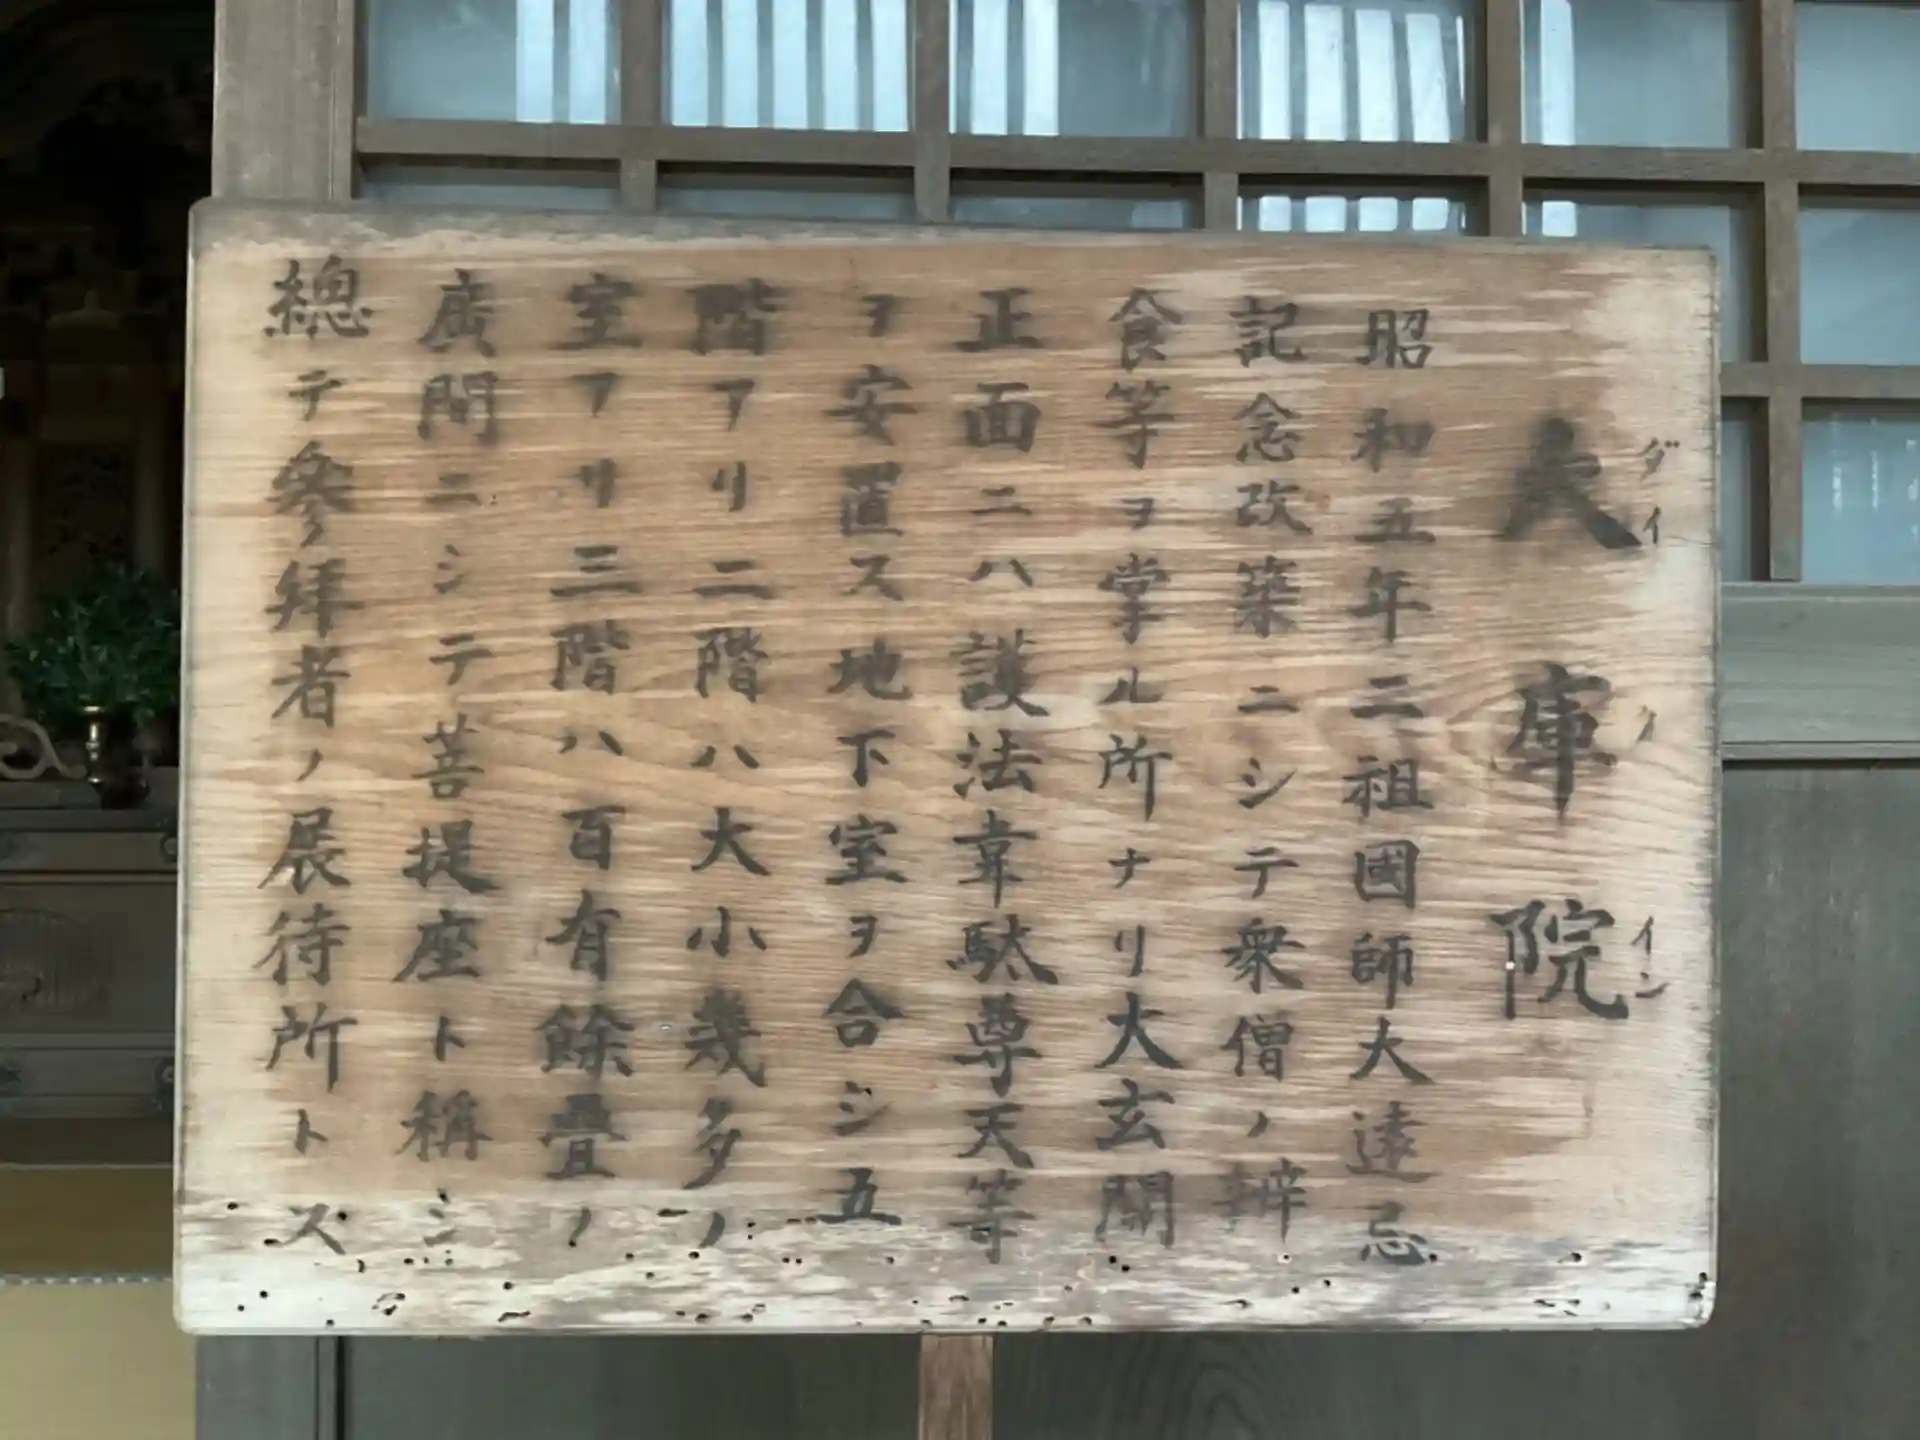 大庫院
ダイ ク イン
昭和五年二祖國師大遠忌
記念改築ニシテ衆僧ノ辨
食等ヲ掌ル所ナリ大玄関
正面ニハ護法韋駄尊天等
ヲ安置ス地下室ヲ合シ五
階アリ二階ハ大小幾多ノ
室アリ三階ハ百有餘疊ノ
廣間ニシテ菩提座ト稱シ
總テ參拜者ノ展待所トス